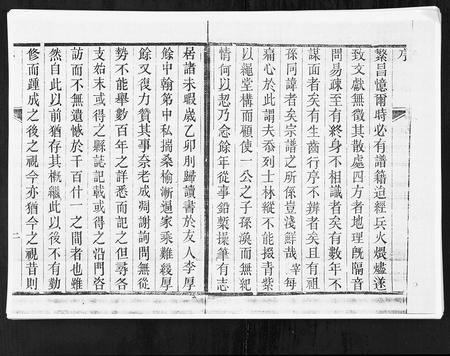 序
繁昌憶爾時必有譜籍迨經兵火煨燼遂
致文獻無徵其散處四方者地理既隔音
問易疎至有終身不相識者矣有數年不
謀面者矣有生齒行序不辨者矣且有祖
孫同諱者矣宗譜之所係豈淺鮮哉 宰每
痛心於此謂夫忝列士林縱不能掇青紫
以繩堂構而顧使一公之子孫渙而無紀
情何以恝乃僉餘年從事鉛槧操筆有志
居諸未暇歲乙卯刖歸讀書於友人李厚
餘中翰第中私揣桑榆漸逼家乘難緩厚
餘又復力贊其事奈老成凋謝詢問無從
勢不能舉數百年之詳悉而記之但尋各
支始末或得之縣誌記載或得之沿門咨
訪而不無遺憾於千百什一之間者也雖
然自此以前猶存其概繼此以後不有勤
修而踵成之後之視今亦猶今之視昔則
二